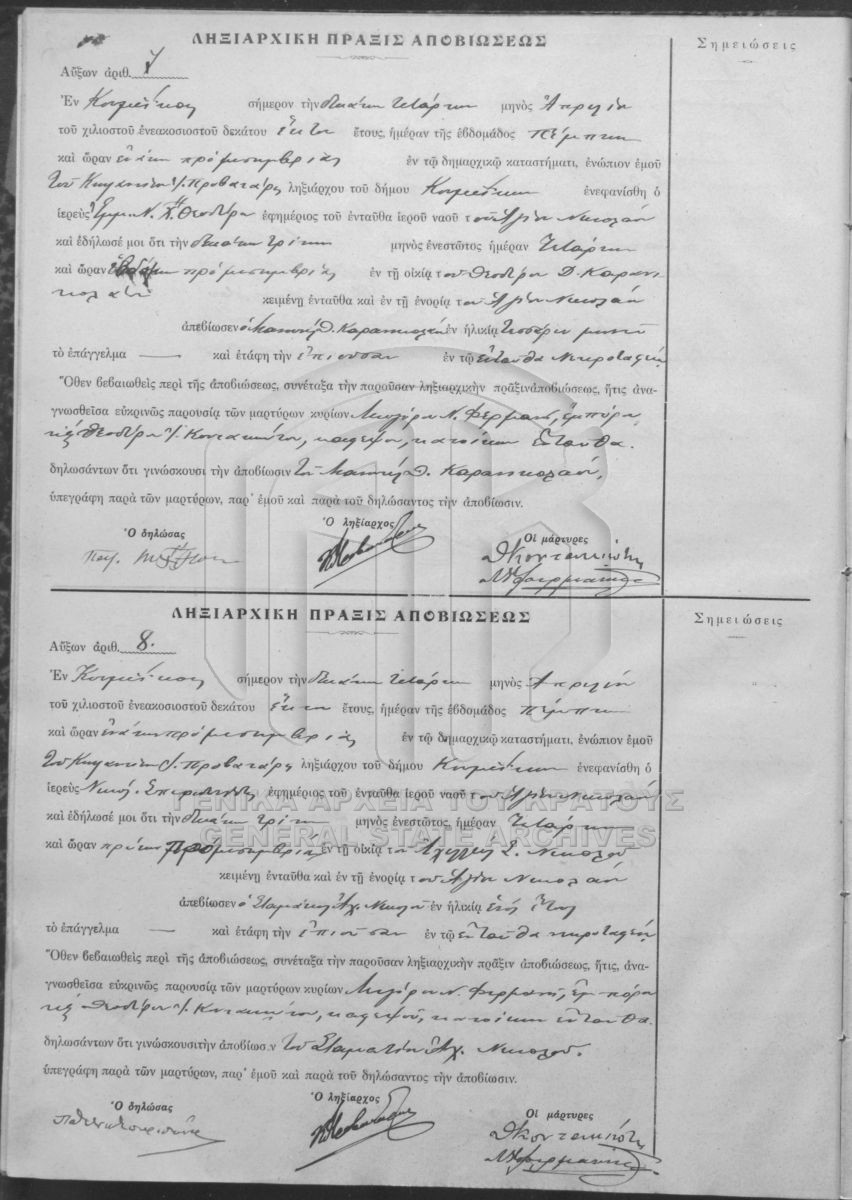 ΛΗΞΙΑΡΧΙΚΗ ΠΡΑΞΙΣ ΑΠΟΒΙΩΣΕΩΣ
Σημειώσεις
Αὔξων ἀριθ. 7
Ἐν σήμερον τὴν δεκάτην τετάρτην μηνὸς Ἀπριλίου
τοῦ χιλιοστοῦ ἐνεακοσιοστοῦ δεκάτου ἕκτου ἔτους, ἡμέραν τῆς ἑβδομάδος Πέμπτην
καὶ ὥραν ἐνάτην πρὸ μεσημβρίας ἐν τῷ δημαρχικῷ καταστήματι, ἐνώπιον ἐμοῦ
τοῦ Προβατάρη ληξιάρχου τοῦ δήμου ἐνεφανίσθη ὁ
ἱερεὺς Ἐμμ. Ν. Χ. Θεοδώρου ἐφημέριος τοῦ ἐνταῦθα ἱεροῦ ναοῦ τοῦ Ἁγίου Νικολάου
καὶ ἐδήλωσέ μοι ὅτι τὴν δεκάτην τρίτην μηνὸς ἐνεστῶτος ἡμέραν Τετάρτην
καὶ ὥραν ἑβδόμην πρὸ μεσημβρίας ἐν τῇ οἰκίᾳ τοῦ Θεοδώρου Δ. Καρανι
κολάου κειμένῃ ἐνταῦθα καὶ ἐν τῇ ἐνορίᾳ τοῦ Ἁγίου Νικολάου
ἀπεβίωσεν ὁ Μανουὴλ Θ. Καρανικολάου ἐν ἡλικίᾳ τεσσάρων μηνῶν
τὸ ἐπάγγελμα — καὶ ἐτάφη τὴν ἐπιοῦσαν ἐν τῷ ἐνταῦθα Νεκροταφείῳ
Ὅθεν βεβαιωθεὶς περὶ τῆς ἀποβιώσεως, συνέταξα τὴν παροῦσαν ληξιαρχικὴν πρᾶξιν ἀποβιώσεως, ἥτις ἀνα-
γνωσθεῖσα εὐκρινῶς παρουσίᾳ τῶν μαρτύρων κυρίων Ν. Φερμανῆ, ἐμπόρου
καὶ Θεοδώρου Κοντακιώτου, καφεψοῦ, κατοίκων ἐνταῦθα.
δηλωσάντων ὅτι γινώσκουσι τὴν ἀποβίωσιν τοῦ Μανουὴλ Θ. Καρανικολάου,
ὑπεγράφη παρὰ τῶν μαρτύρων, παρ' ἐμοῦ καὶ παρὰ τοῦ δηλώσαντος τὴν ἀποβίωσιν.
Ὁ δηλώσας
Ὁ ληξίαρχος
Οἱ μάρτυρες
Θ Κοντακιώτης
ΛΗΞΙΑΡΧΙΚΗ ΠΡΑΞΙΣ ΑΠΟΒΙΩΣΕΩΣ
Σημειώσεις
Αὔξων ἀριθ. 8.
Ἐν σήμερον τὴν δεκάτην τετάρτην μηνὸς Ἀπριλίου
τοῦ χιλιοστοῦ ἐνεακοσιοστοῦ δεκάτου ἕκτου ἔτους, ἡμέραν τῆς ἑβδομάδος Πέμπτην
καὶ ὥραν ἐνάτην πρὸ μεσημβρίας ἐν τῷ δημαρχικῷ καταστήματι, ἐνώπιον ἐμοῦ
τοῦ Προβατάρη ληξιάρχου τοῦ δήμου ἐνεφανίσθη ὁ
ἱερεὺς Νικόλ. ἐφημέριος τοῦ ἐνταῦθα ἱεροῦ ναοῦ τοῦ Ἁγίου Νικολάου
ΓΕΝΙΚΑ ΑΡΧΕΙΑ ΤΟΥ ΚΡΑΤΟΥΣ
καὶ ἐδήλωσέ μοι ὅτι τὴν δεκάτην τρίτην μηνὸς ἐνεστῶτος, ἡμέραν Τετάρτην
GENERAL STATE ARCHIVES
καὶ ὥραν πρώτην προμεσημβρίας ἐν τῇ οἰκίᾳ τοῦ Νικολοῦ
κειμένῃ ἐνταῦθα καὶ ἐν τῇ ἐνορίᾳ τοῦ Ἁγίου Νικολάου
ἀπεβίωσεν ὁ Σταμάτιος Ἀχ. Νικολοῦ ἐν ἡλικίᾳ ἑνὸς ἔτους
τὸ ἐπάγγελμα — καὶ ἐτάφη τὴν ἐπιοῦσαν ἐν τῷ ἐνταῦθα νεκροταφείῳ
Ὅθεν βεβαιωθεὶς περὶ τῆς ἀποβιώσεως, συνέταξα τὴν παροῦσαν ληξιαρχικὴν πρᾶξιν ἀποβιώσεως, ἥτις, ἀνα-
γνωσθεῖσα εὐκρινῶς παρουσίᾳ τῶν μαρτύρων κυρίων Ν. Φερμανῆ, ἐμπόρου
καὶ Θεοδώρου Κοντακιώτου, καφεψοῦ, κατοίκων ἐνταῦθα.
δηλωσάντων ὅτι γινώσκουσι τὴν ἀποβίωσιν τοῦ Σταματίου Ἀχ. Νικολοῦ.
ὑπεγράφη παρὰ τῶν μαρτύρων, παρ' ἐμοῦ καὶ παρὰ τοῦ δηλώσαντος τὴν ἀποβίωσιν.
Ὁ δηλώσας
Ὁ ληξίαρχος
Οἱ μάρτυρες
Θ Κοντακιώτης